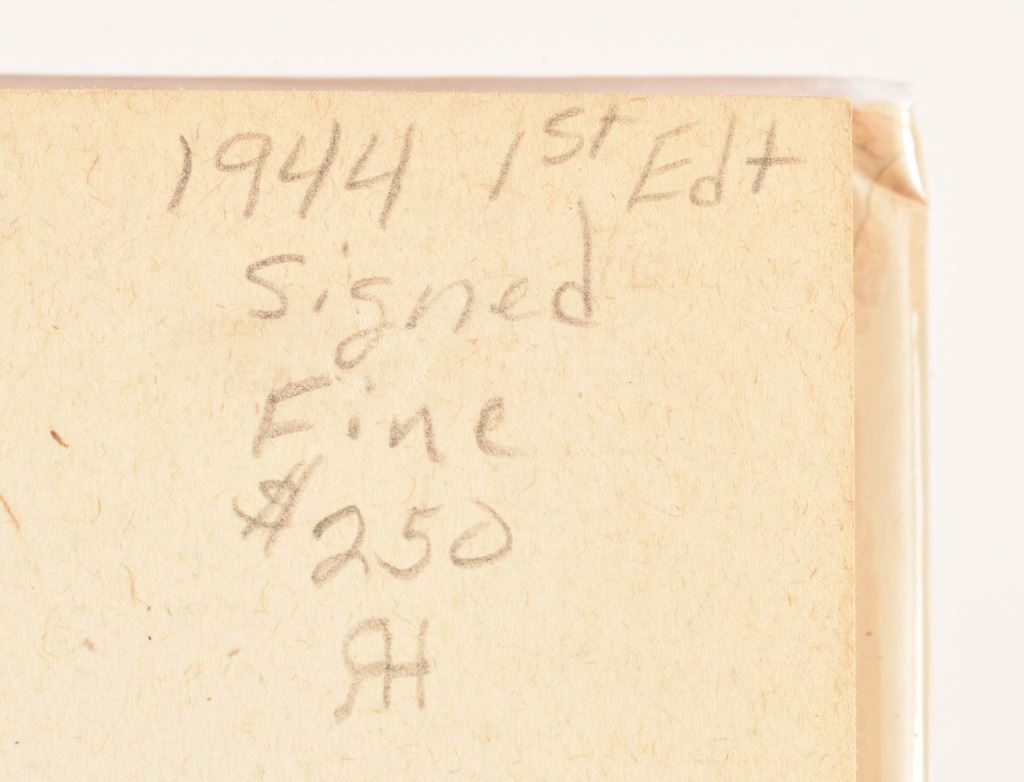 1944 1st Edt
Signed
Fine
$250
RH